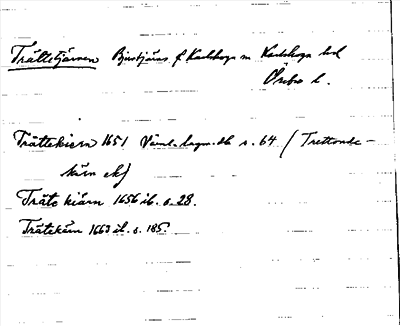 Trättetjärnen Bjurtjärns f Karlskoga sn Karlskoga hd
Örebro l.
Trättekiern 1651 Värml. lagm. db s. 64 (Trettonde-
kärn ek)
Träte kiärn 1656 ib. s. 28.
Trätekärn 1663 ib. s. 185.